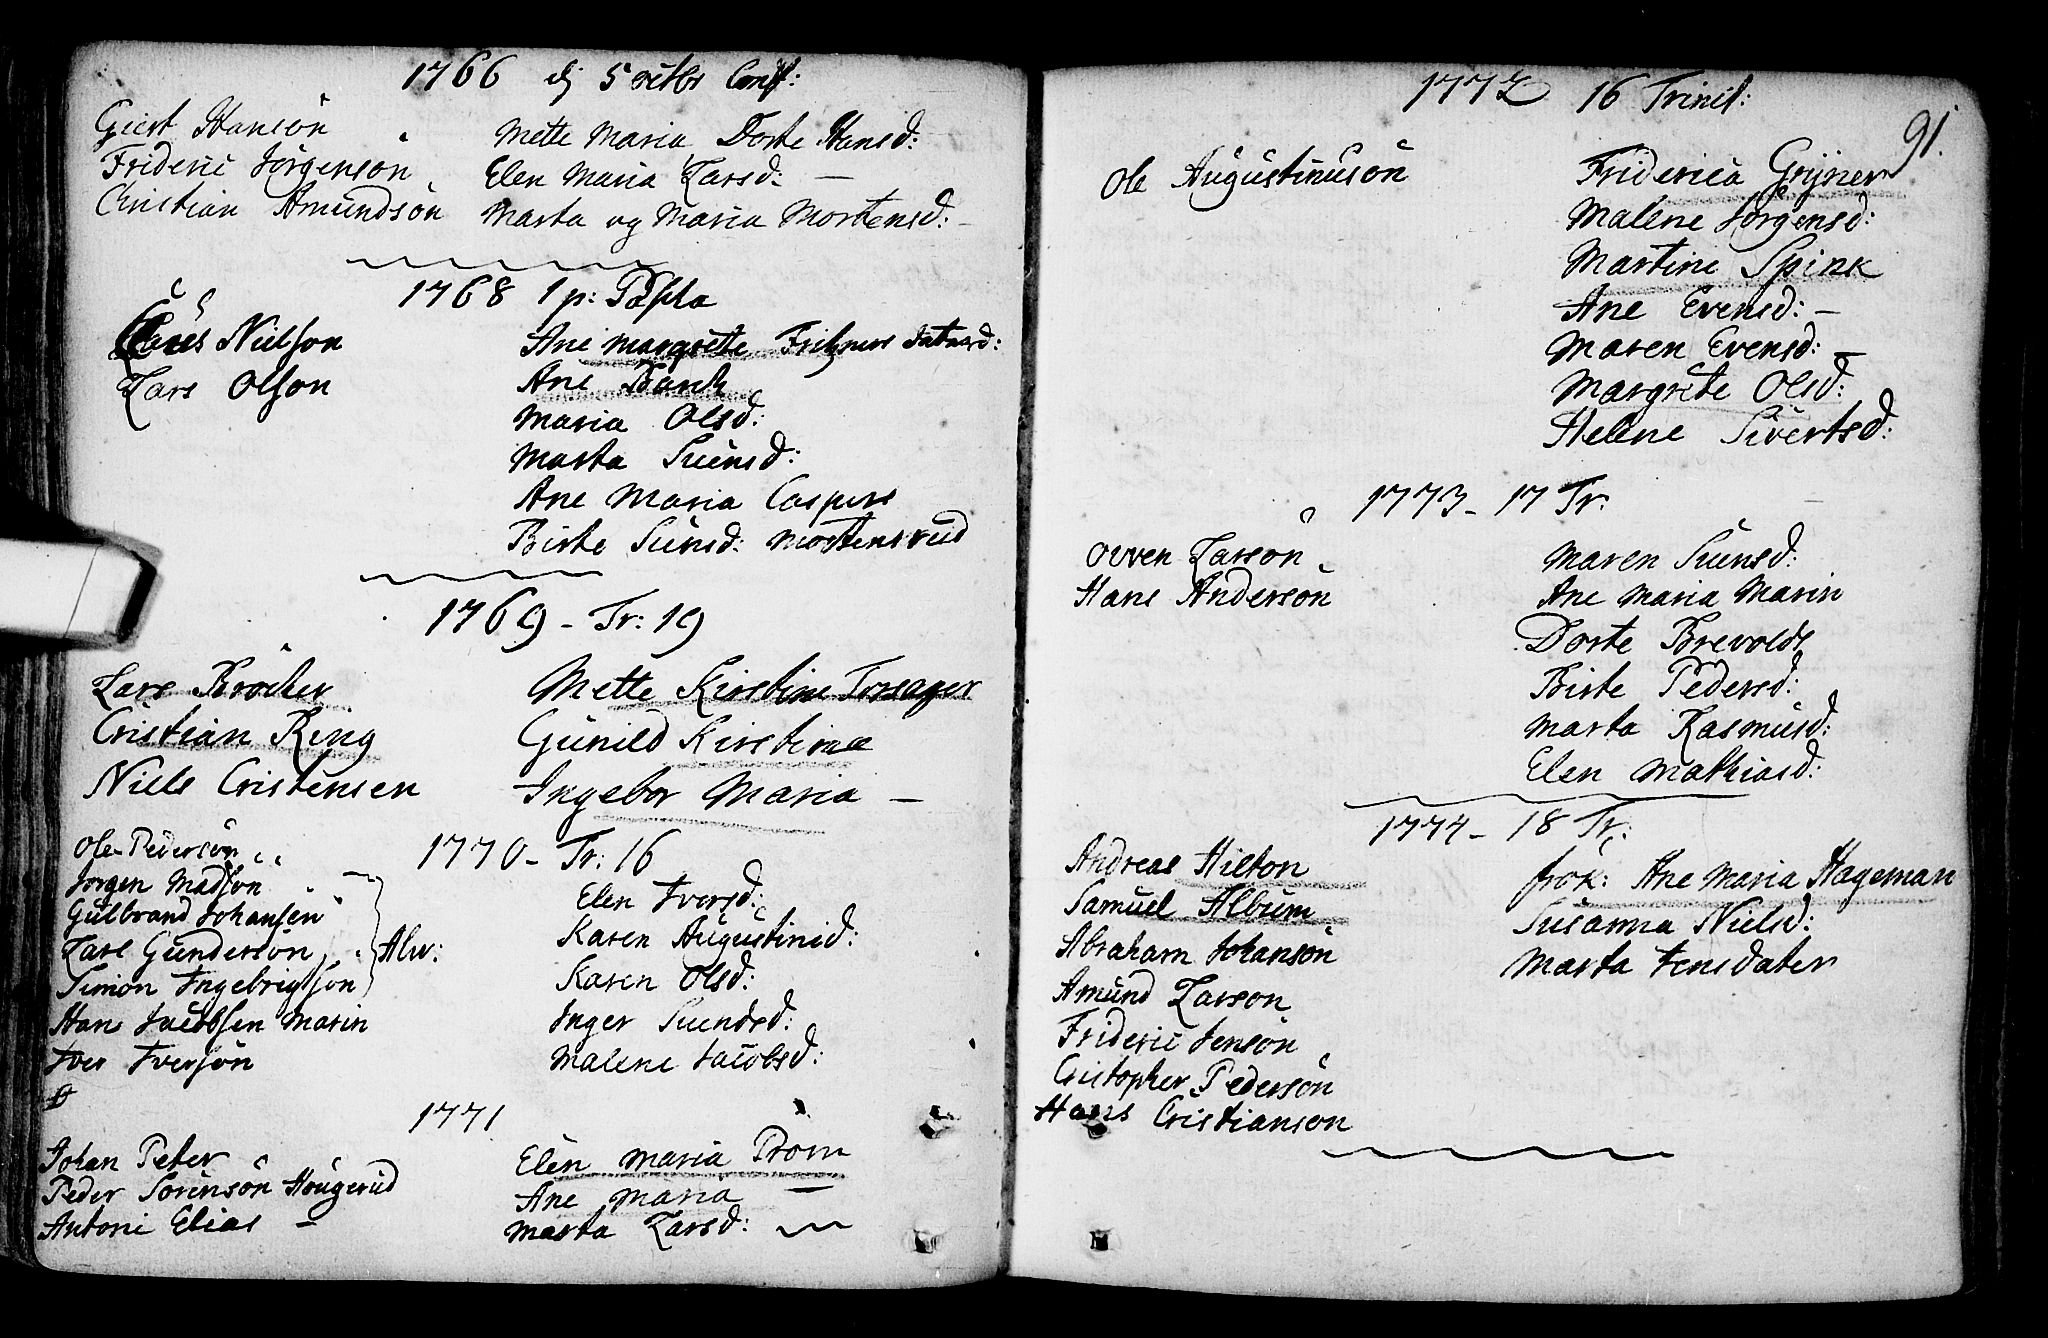 1766 d 5 octbr Conf:
Giert Hansön
Frideric Jörgensön
Christian Amundsön
Mette Maria Dorte Hansd:
Elen Maria Larsd. —
Marta og Maria Mortensd: -
1768 1 p: Pascha
Nielson
Lars Olson
Ane Margrete
Ane Banck
Maria Olsd:
Marta Suensd:
Ane Maria Caspers
Birte Suensd: Mortensrud
1769 - Tr: 19
Lars Bröcher
Cristian Ring
Niels Cristensen
Mette Kirstine Torsager
Gunild Kirstine
Ingebor Maria —
1770 - Tr: 16
Ole Pedersön
Jorgen Madsön
Gulbrand Johansen
Lars Gundersön
Simon Ingebrigtson
Alw:
Hans Jacobsen Marin
Iver Iversön
Elen Iversd:
Karen Augustinsd:
Karen Olsd:
Inger Suendsd:
Malene Jacobsd:
1771
Johan Peter
Peder Sörensön Höugerud
Antoni Elias -
Elen Maria Prom
Ane Maria —
Marta Larsd:
91.
1772 16 Trinit:
Ole Augustinusön
Friderica Grijner
Malene Jörgensd:
Martine Spink
Ane Evensd: -
Maren Evensd: -
Margrete Olsd:
Helene Sivertsd:
1773 - 17 Tr.
Ovven Larson
Hans Andersön
Maren Suensd:
Ane Maria Marin
Dorte Brevolds
Birte Pedersd:
Marta Rasmusd:
Elen Mathiasd:
1774 - 18 Tr:
Andreas Hilton
Samuel Album
Abraham Johansön
Amund Larson
Frideric Jensön
Cristopher Pedersön
Hans Cristianson
frök: Ane Maria Hageman
Susanna Nielsd:
Marta Jensdater